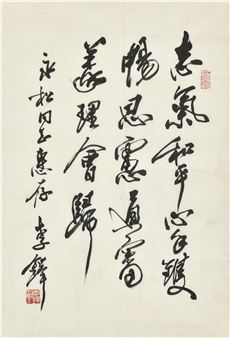 志氣和平心手雙
暢思慮通審
義理會歸
永松同志惠存 李鐸